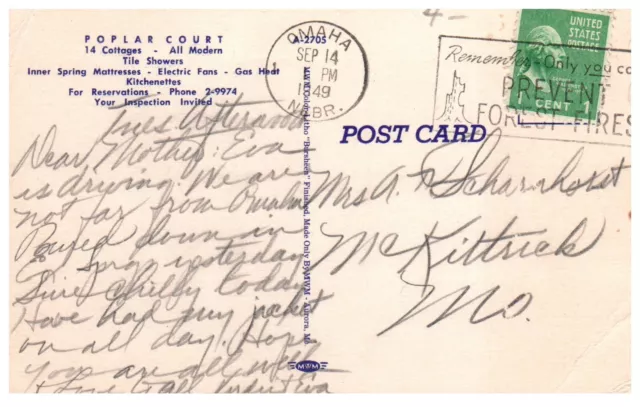 POPLAR COURT
14 Cottages - All Modern
Tile Showers
Inner Spring Mattresses - Electric Fans - Gas Heat
Kitchenettes
For Reservations - Phone 2-9974
Your Inspection Invited
Tues Afternoon
Dear Mother: Eva
is driving. We are
not far from Omaha
down in
yesterday
Sure chilly today
Have had my jacket
on all day. Hope
you are all well
Love to all Eva
A-2705
"Beautiful Finished. Made Only By MWM - Aurora, Mo.
MWM
POST CARD
OMAHA
SEP 14
1 PM
1949
NEBR.
Remember - Only you ca
PREVENT
FOREST FIRES
UNITED
STATES
POSTAGE
1 CENT 1
4-
Mrs A. F. Scharnhorst
McKittrick
Mo.